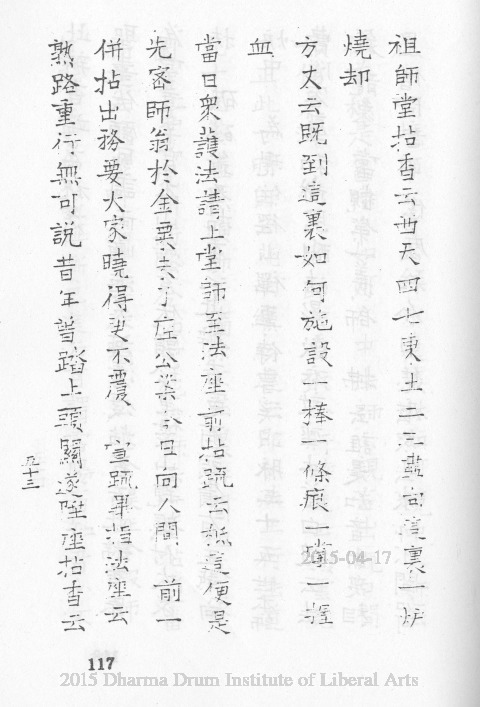 祖師堂拈香云西天四七東土二三盡向這裏一炉
燒却
方丈云既到這裏如何施設一棒一條痕一摑一握
血
當日衆護法請上堂師至法座前拈疏云秪這便是
先密師翁於金粟去了底公案今日向人間前一
併拈出務要大家曉得更不覆 宣疏畢指法座云
熟路重行無可説昔年曾踏上頭關遂陞座拈香云
五十三
117
2015-04-17
2015 Dharma Drum Institute of Liberal Arts